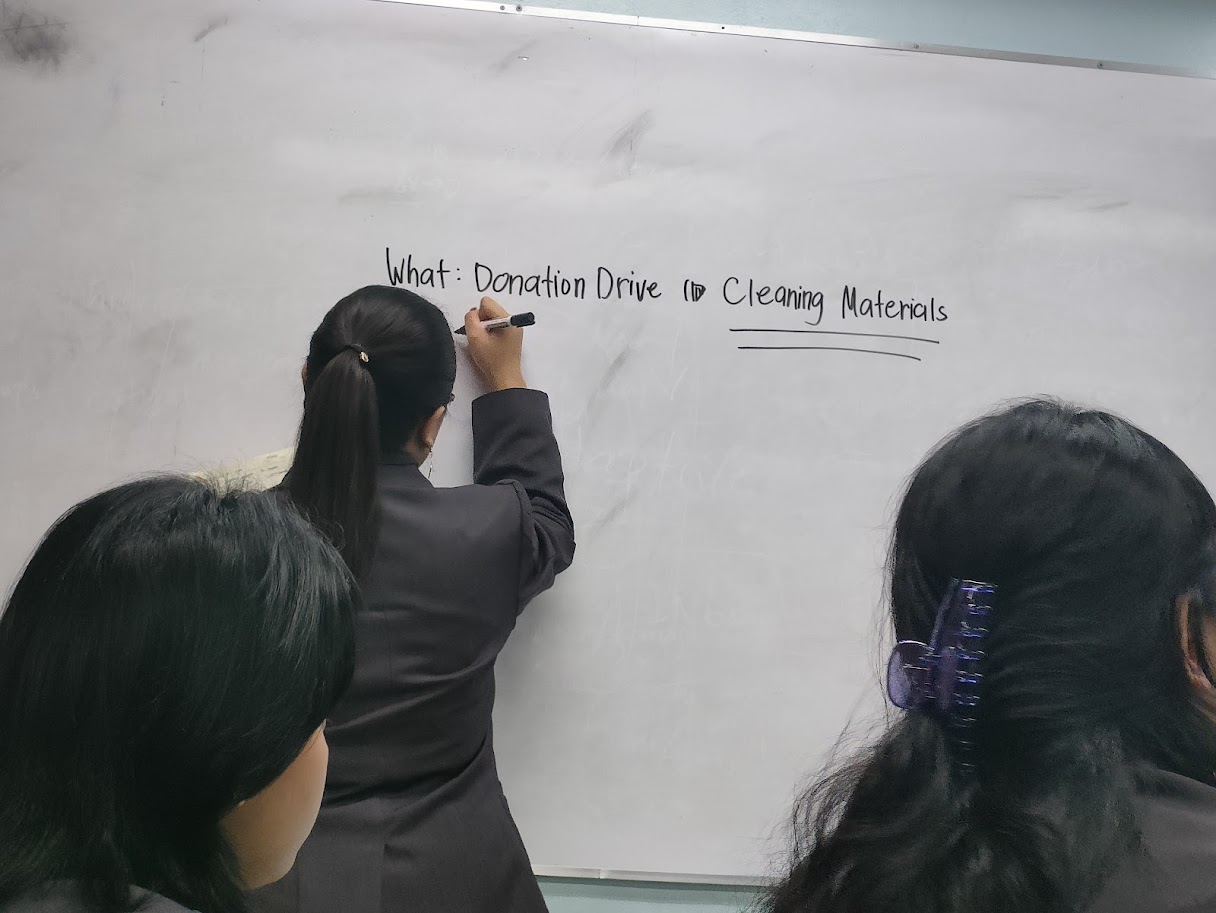 What: Donation Drive ⇒ Cleaning Materials